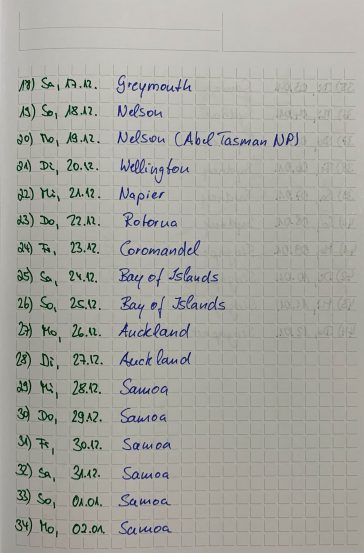 18) Sa, 17.12. Greymouth
19) So, 18.12. Nelson
20) Mo, 19.12. Nelson (Abel Tasman NP)
21) Di, 20.12. Wellington
22) Mi, 21.12. Napier
23) Do, 22.12. Rotorua
24) Fr, 23.12. Coromandel
25) Sa, 24.12. Bay of Islands
26) So, 25.12. Bay of Islands
27) Mo, 26.12. Auckland
28) Di, 27.12. Auckland
29) Mi, 28.12. Samoa
30) Do, 29.12. Samoa
31) Fr, 30.12. Samoa
32) Sa, 31.12. Samoa
33) So, 01.01. Samoa
34) Mo, 02.01. Samoa